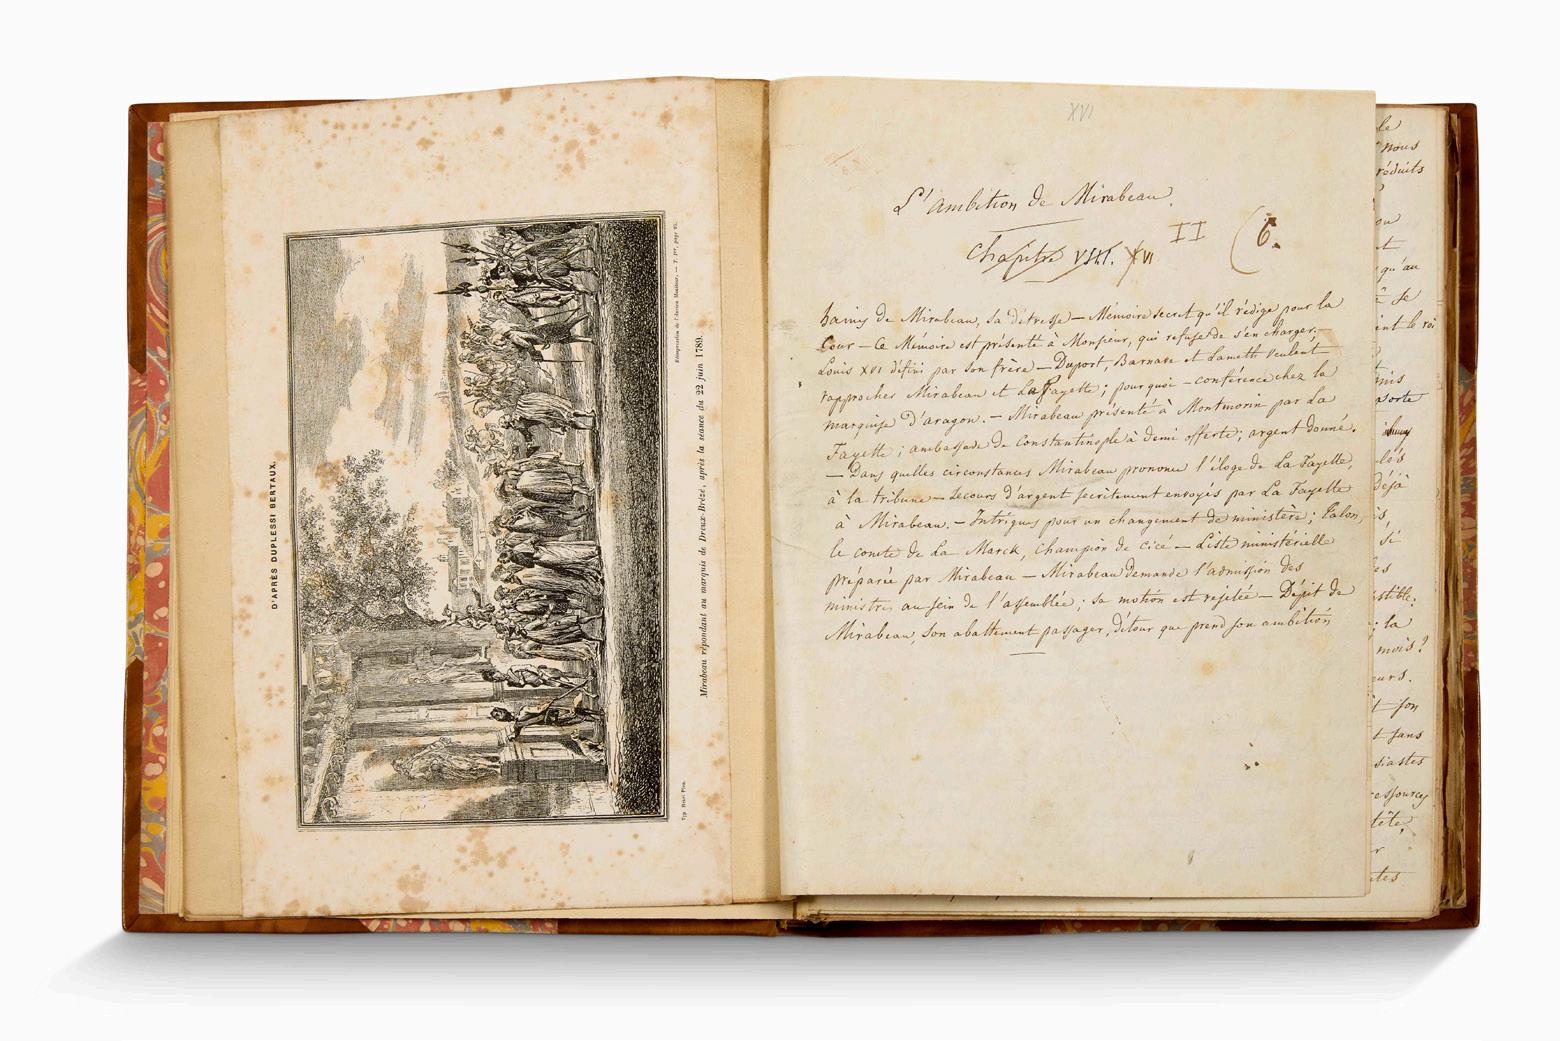 D'APRÈS DUPLESSI BERTAUX.
Réimpression de l'Ancien Moniteur. — T. Ier, page 95.
Typ. Henri Plon.
Mirabeau répondant au marquis de Dreux-Brézé, après la séance du 22 juin 1789.
XVI
L'ambition de Mirabeau.
II (6.
Chapitre VIII. XVI
haines de Mirabeau, sa détresse — Mémoire secret qu'il rédige pour la
Cour — Ce Mémoire est présenté à Monsieur, qui refuse de s'en charger.—
Louis XVI défini par son frère — Duport, Barnave et Lameth veulent
rapprocher Mirabeau et La Fayette; pourquoi — conférence chez la
marquise d'aragon. — Mirabeau présenté à Montmorin par La
Fayette; ambassade de Constantinople à demi offerte; argent donné.
— Dans quelles circonstances Mirabeau prononce l'éloge de La Fayette,
à la tribune — Secours d'argent secrètement envoyés par La Fayette
à Mirabeau. — Intrigues pour un changement de ministère; Talon,
le comte de La Marck, Champion de Cicé — Liste ministérielle
préparée par Mirabeau — Mirabeau demande l'admission des
ministres au sein de l'assemblée; sa motion est rejetée — Dépit de
Mirabeau, son abattement passager, détour que prend son ambition
le
nous
réduits
ou
t
qu'au
se
int le roi
mis
sorte
lois
Déjà
is
si
es
stible.
; la
mois?
eurs.
t son
t sans
siastes
essources
tête,
r
tes